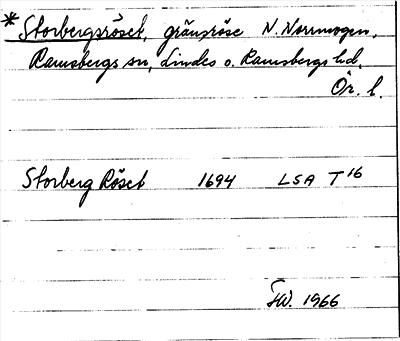 * Storbergsröset, gränsröse N. Norrmogen,
Ramsbergs sn, Lindes o. Ramsbergs hd,
Ör. l.
Storberg Röset 1694 LSA T 16
FW. 1966